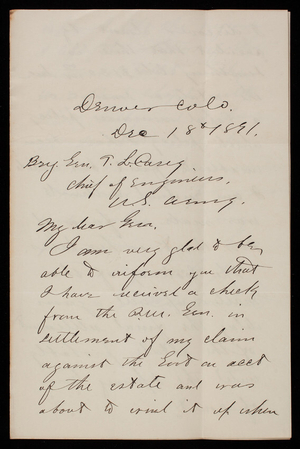 Denver Colo.
Dec 18th 1891.
Brig. Gen. T. L. Casey
Chief of Engineers,
U.S. Army.
My dear Gen.
I am very glad to be
able to inform you that
I have received a check
from the Qur. Gen. in
settlement of my claim
against the Govt on acct
of the estate and was
about to wind it up when